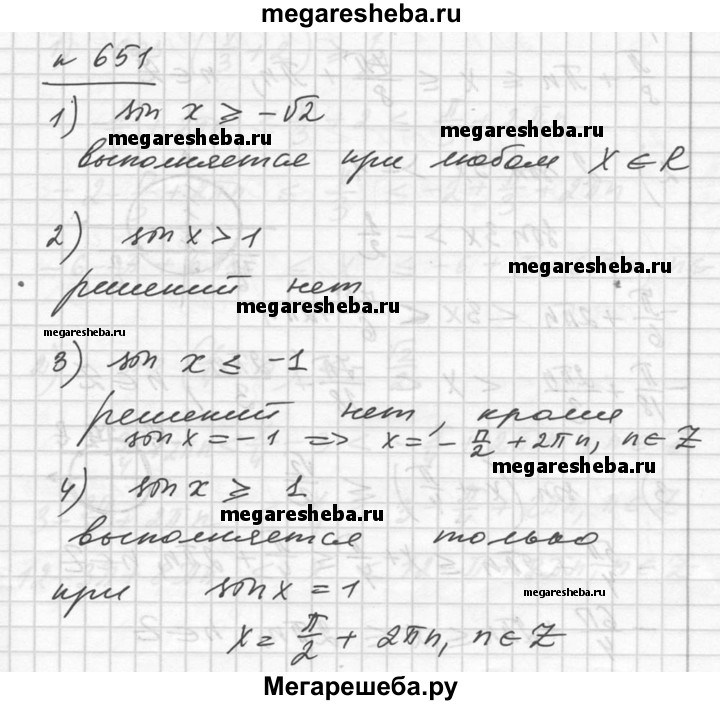 megaresheba.ru
№ 651
1) sin x ⩾ -√2
megaresheba.ru
megaresheba.ru
выполняется при любом X ∈ R
2) sin x > 1
megaresheba.ru
решений нет
megaresheba.ru
megaresheba.ru
3) sin x ≤ -1
решений нет, кроме
sin x = -1 => x = -π/2 + 2πn, n ∈ Z
megaresheba.ru
4) sin x ⩾ 1
megaresheba.ru
выполняется только
при sin x = 1
megaresheba.ru
x = π/2 + 2πn, n ∈ Z
Мегарешеба.ру